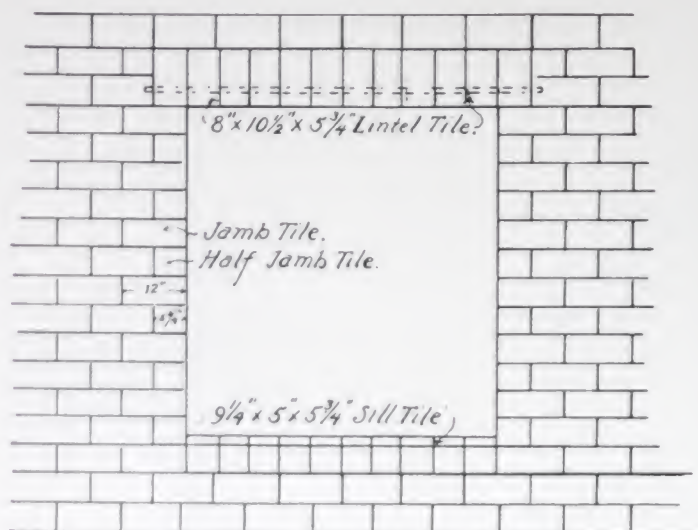 8" x 10½" x 5¾" Lintel Tile.
Jamb Tile.
Half Jamb Tile.
12"
5¾"
9¼" x 5" x 5¾" Sill Tile